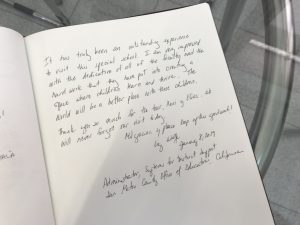 It has truly been an outstanding experience
to visit this special school. I am very impressed
with the dedication of all of the faculty and the
hard work that they have put into creating a
space where children learn and thrive. The
world will be a better place with these children.
Thank you so much for the tour,
will never forget our visit today.
please keep up the good work!
January
Administrator, Systems for Student Support
San Mateo County Office of Education, California